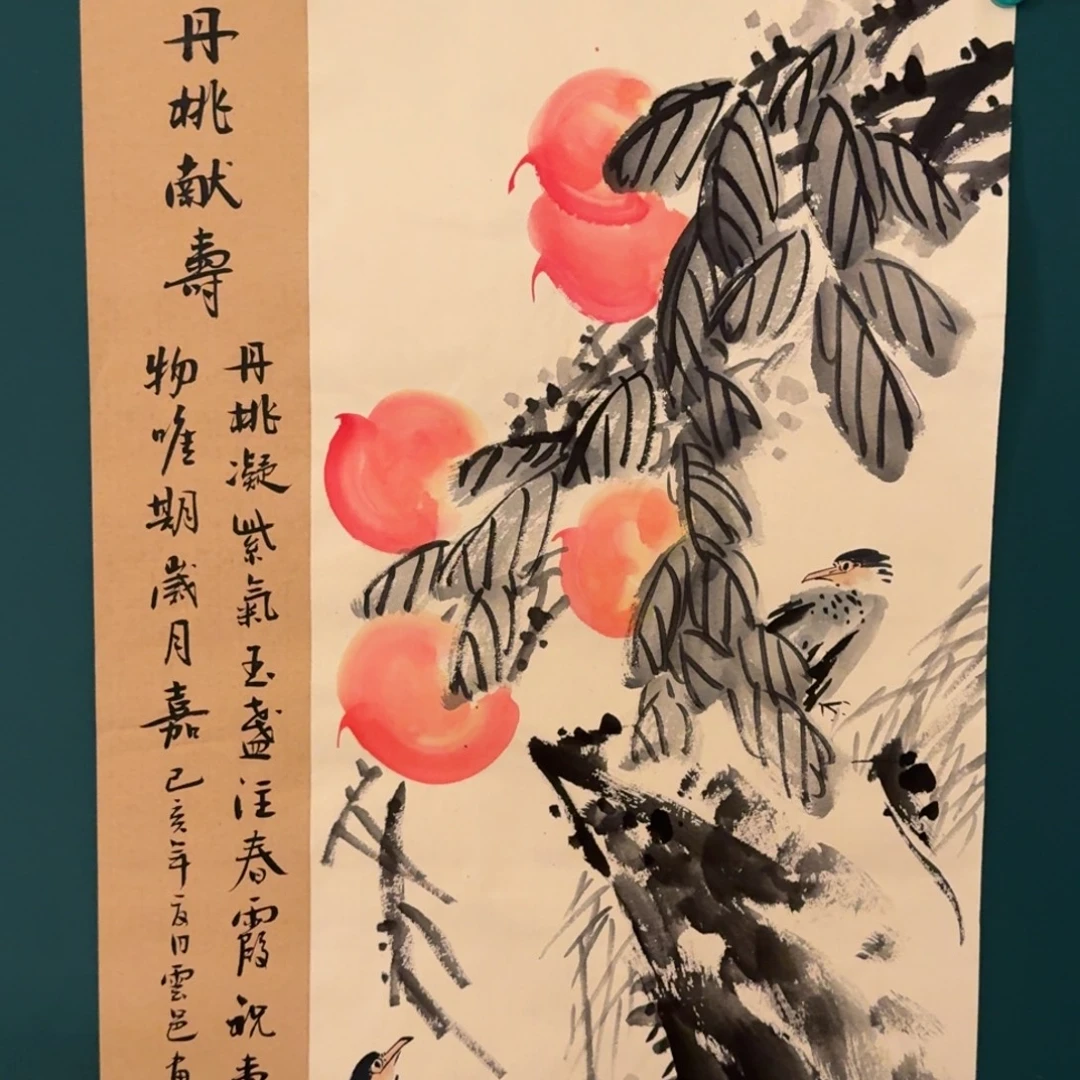 丹桃献壽
丹桃凝紫氣玉盞注春霞祝壽
物唯期歲月嘉己亥年夏日雲邑画